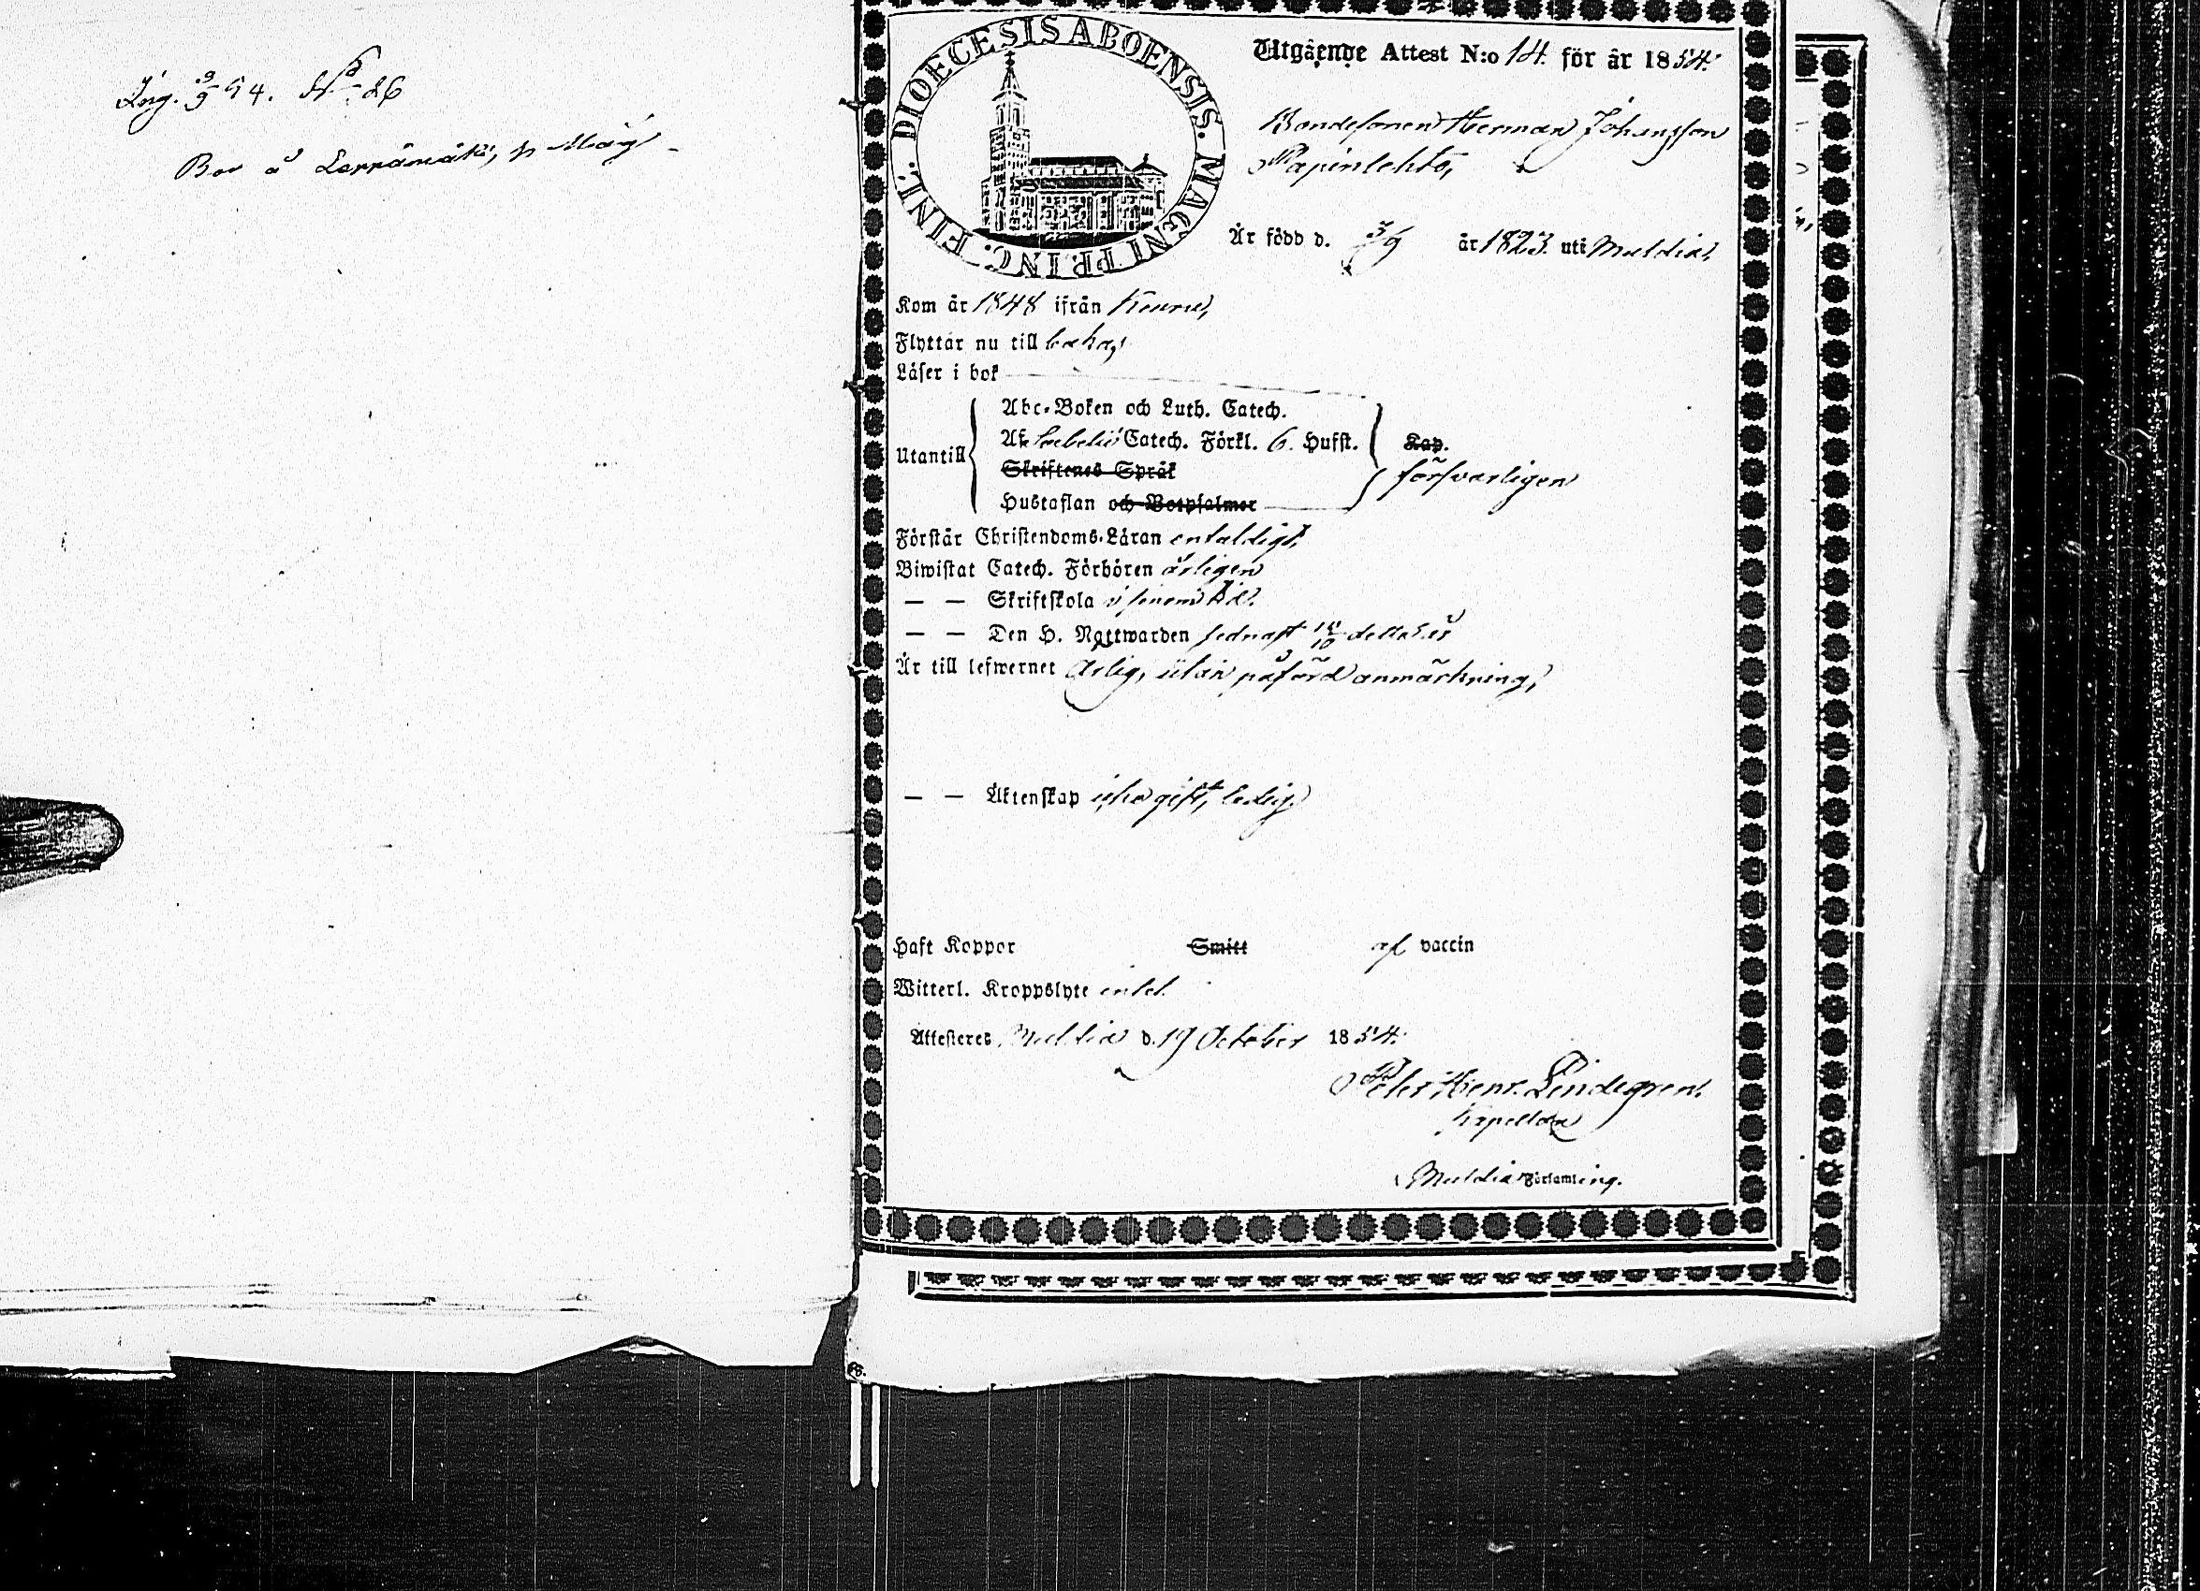 Ing. 9/9 54. No 26
Bor å Leppämäki,
DIOECESIS ABOENSIS. MAGNI PRINC. FINL.
Utgående Attest N:o 14. för år 1854.
Bondesonen Herman Johansson
Papinlehto,
Är född d. 3/9 år 1823. uti Muldia,
Kom år 1848 ifrån Keuru,
Flyttar nu till baka,
Läser i bok
Abc-Boken och Luth. Catech.
Utantill Af Sebelii Catech. Förkl. 6. Hufst. Kap.
Skriftenes Språk försvarligen
Hustaflan och Botpsalmer
Förstår Christendoms-Läran enfaldigt,
Biwistat Catech. Förhören årligen
— — Skriftskola i sinom tid.
— — Den H. Nattwarden sednast 15/10 detta år
Är till lefwernet Ärlig, utan påförd anmärkning,
— — Äktenskap icke gift, ledig.
Haft Koppor Smitt af vaccin
Witterl. Kroppslyte intet.
Attesteres Muldia d. 19 October 1854.
Peter Henr. Lindegren.
Kapellan
Muldia Församling.